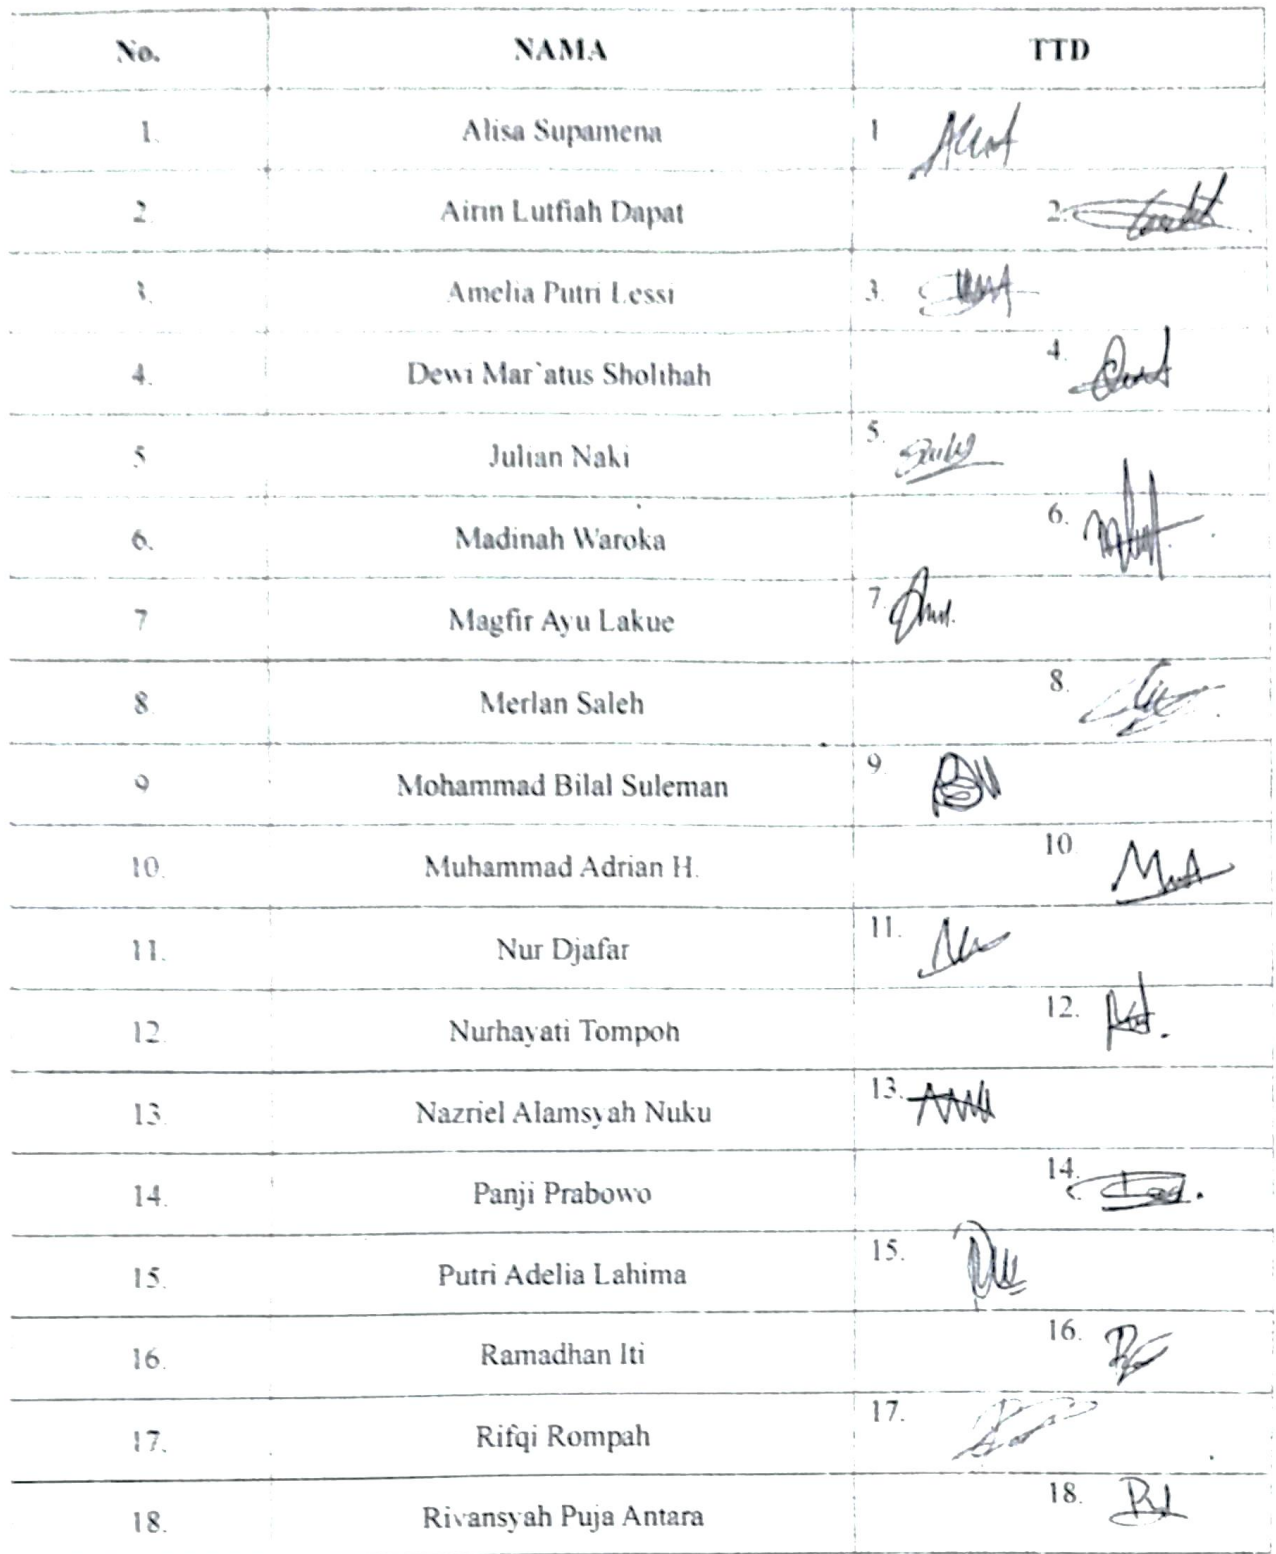 No. NAMA TTD
1. Alisa Supamena 1
2. Airin Lutfiah Dapat 2.
3. Amelia Putri Lessi 3.
4. Dewi Mar`atus Sholihah 4.
5 Julian Naki 5.
6. Madinah Waroka 6.
7 Magfir Ayu Lakue 7.
8 Merlan Saleh 8.
9 Mohammad Bilal Suleman 9
10. Muhammad Adrian H. 10
11. Nur Djafar 11.
12. Nurhayati Tompoh 12.
13. Nazriel Alamsyah Nuku 13.
14. Panji Prabowo 14.
15. Putri Adelia Lahima 15.
16. Ramadhan Iti 16.
17. Rifqi Rompah 17.
18. Rivansyah Puja Antara 18.